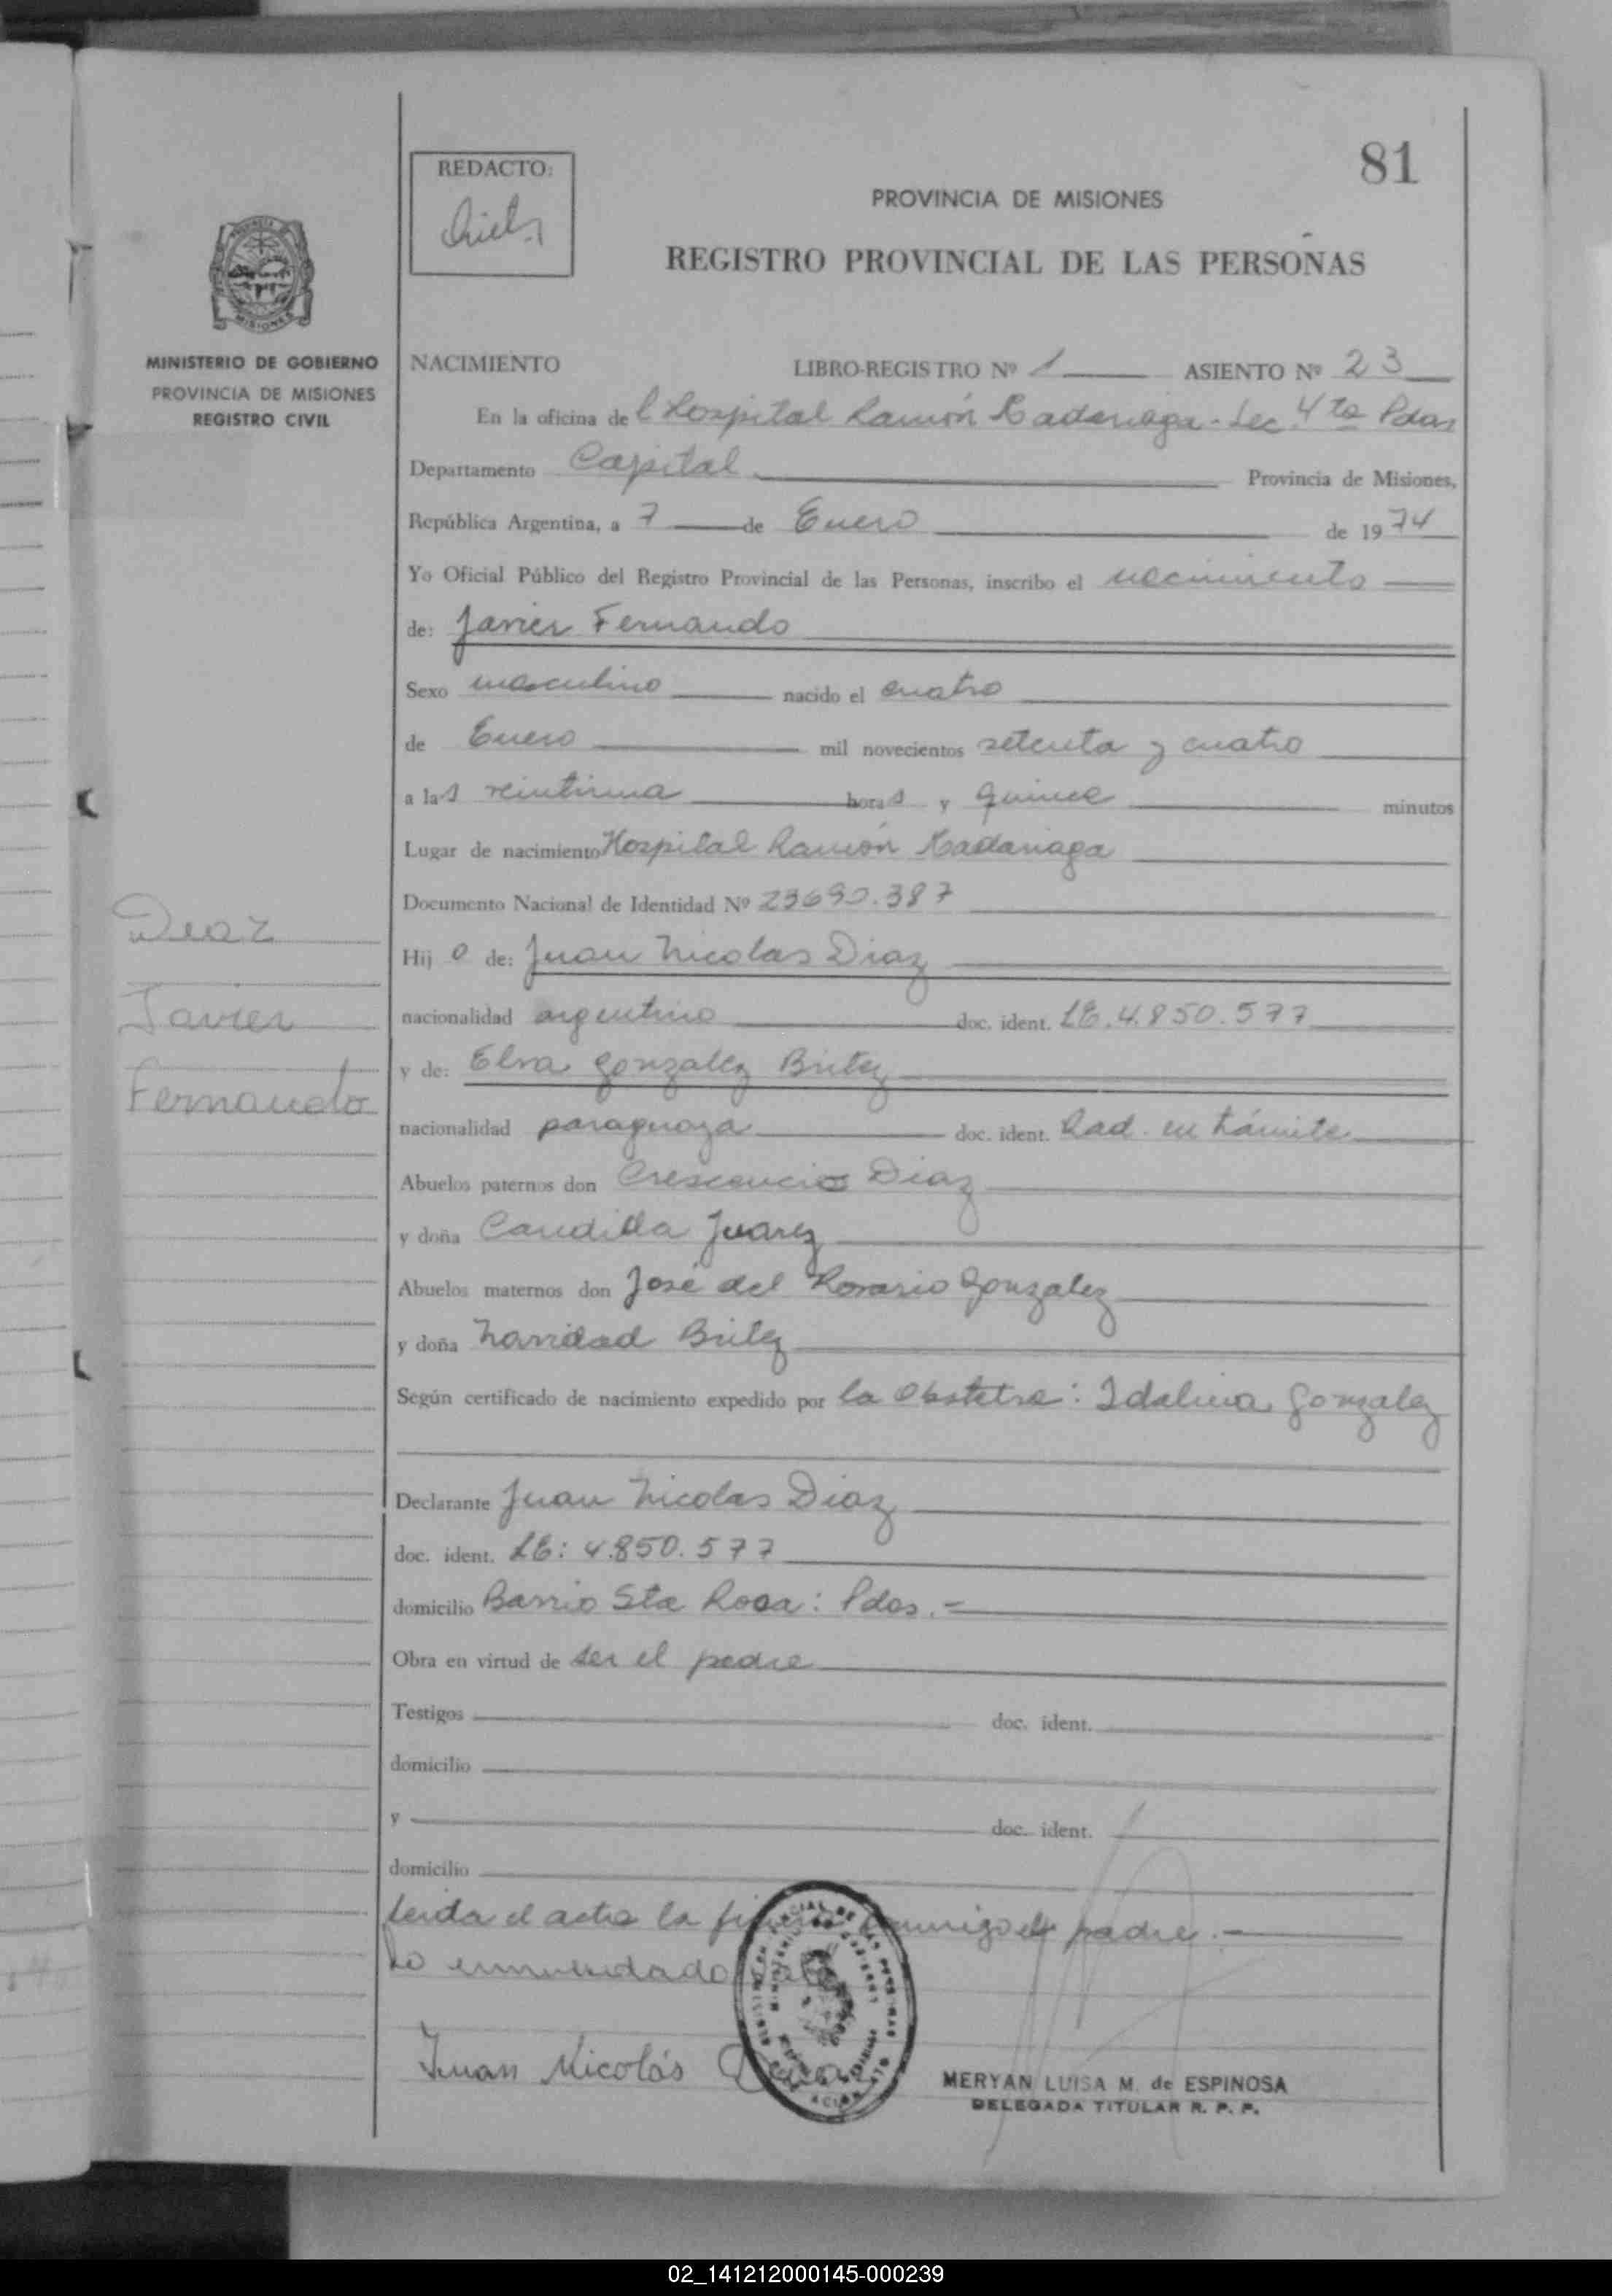 81
REDACTO:
PROVINCIA DE MISIONES
REGISTRO PROVINCIAL DE LAS PERSONAS
MISIONES
MINISTERIO DE GOBIERNO
PROVINCIA DE MISIONES
REGISTRO CIVIL
NACIMIENTO LIBRO-REGISTRO Nº 1 ASIENTO Nº 23
En la oficina del Hospital Ramón Madariaga - Sec. 4ta Pdas
Departamento Capital Provincia de Misiones,
República Argentina, a 7 de Enero de 1974
Yo Oficial Público del Registro Provincial de las Personas, inscribo el nacimiento
de: Javier Fernando
Sexo masculino nacido el cuatro
de Enero mil novecientos setenta y cuatro
a las veintiuna horas y quince minutos
Lugar de nacimiento Hospital Ramón Madariaga
Documento Nacional de Identidad Nº 23690.387
Hijo de: Juan Nicolas Diaz
nacionalidad argentino doc. ident. LE. 4.850.577
y de: Elva Gonzalez Britez
nacionalidad paraguaya doc. ident. Rad. en trámite
Abuelos paternos don Crescencio Diaz
y doña Candida Juarez
Abuelos maternos don José del Rosario Gonzalez
y doña Navidad Britez
Según certificado de nacimiento expedido por la Obstetra: Idalina Gonzalez
Declarante Juan Nicolas Diaz
doc. ident. LE: 4.850.577
domicilio Barrio Sta Rosa: Pdas.-
Obra en virtud de ser el padre
Testigos doc. ident.
domicilio
y doc. ident.
domicilio
Leida el acta la firma conmigo el padre.-
Lo enmendado vale
Juan Nicolás Diaz
MERYAN LUISA M. de ESPINOSA
DELEGADA TITULAR R. P. P.
Diaz
Javier
Fernando
02_141212000145-000239